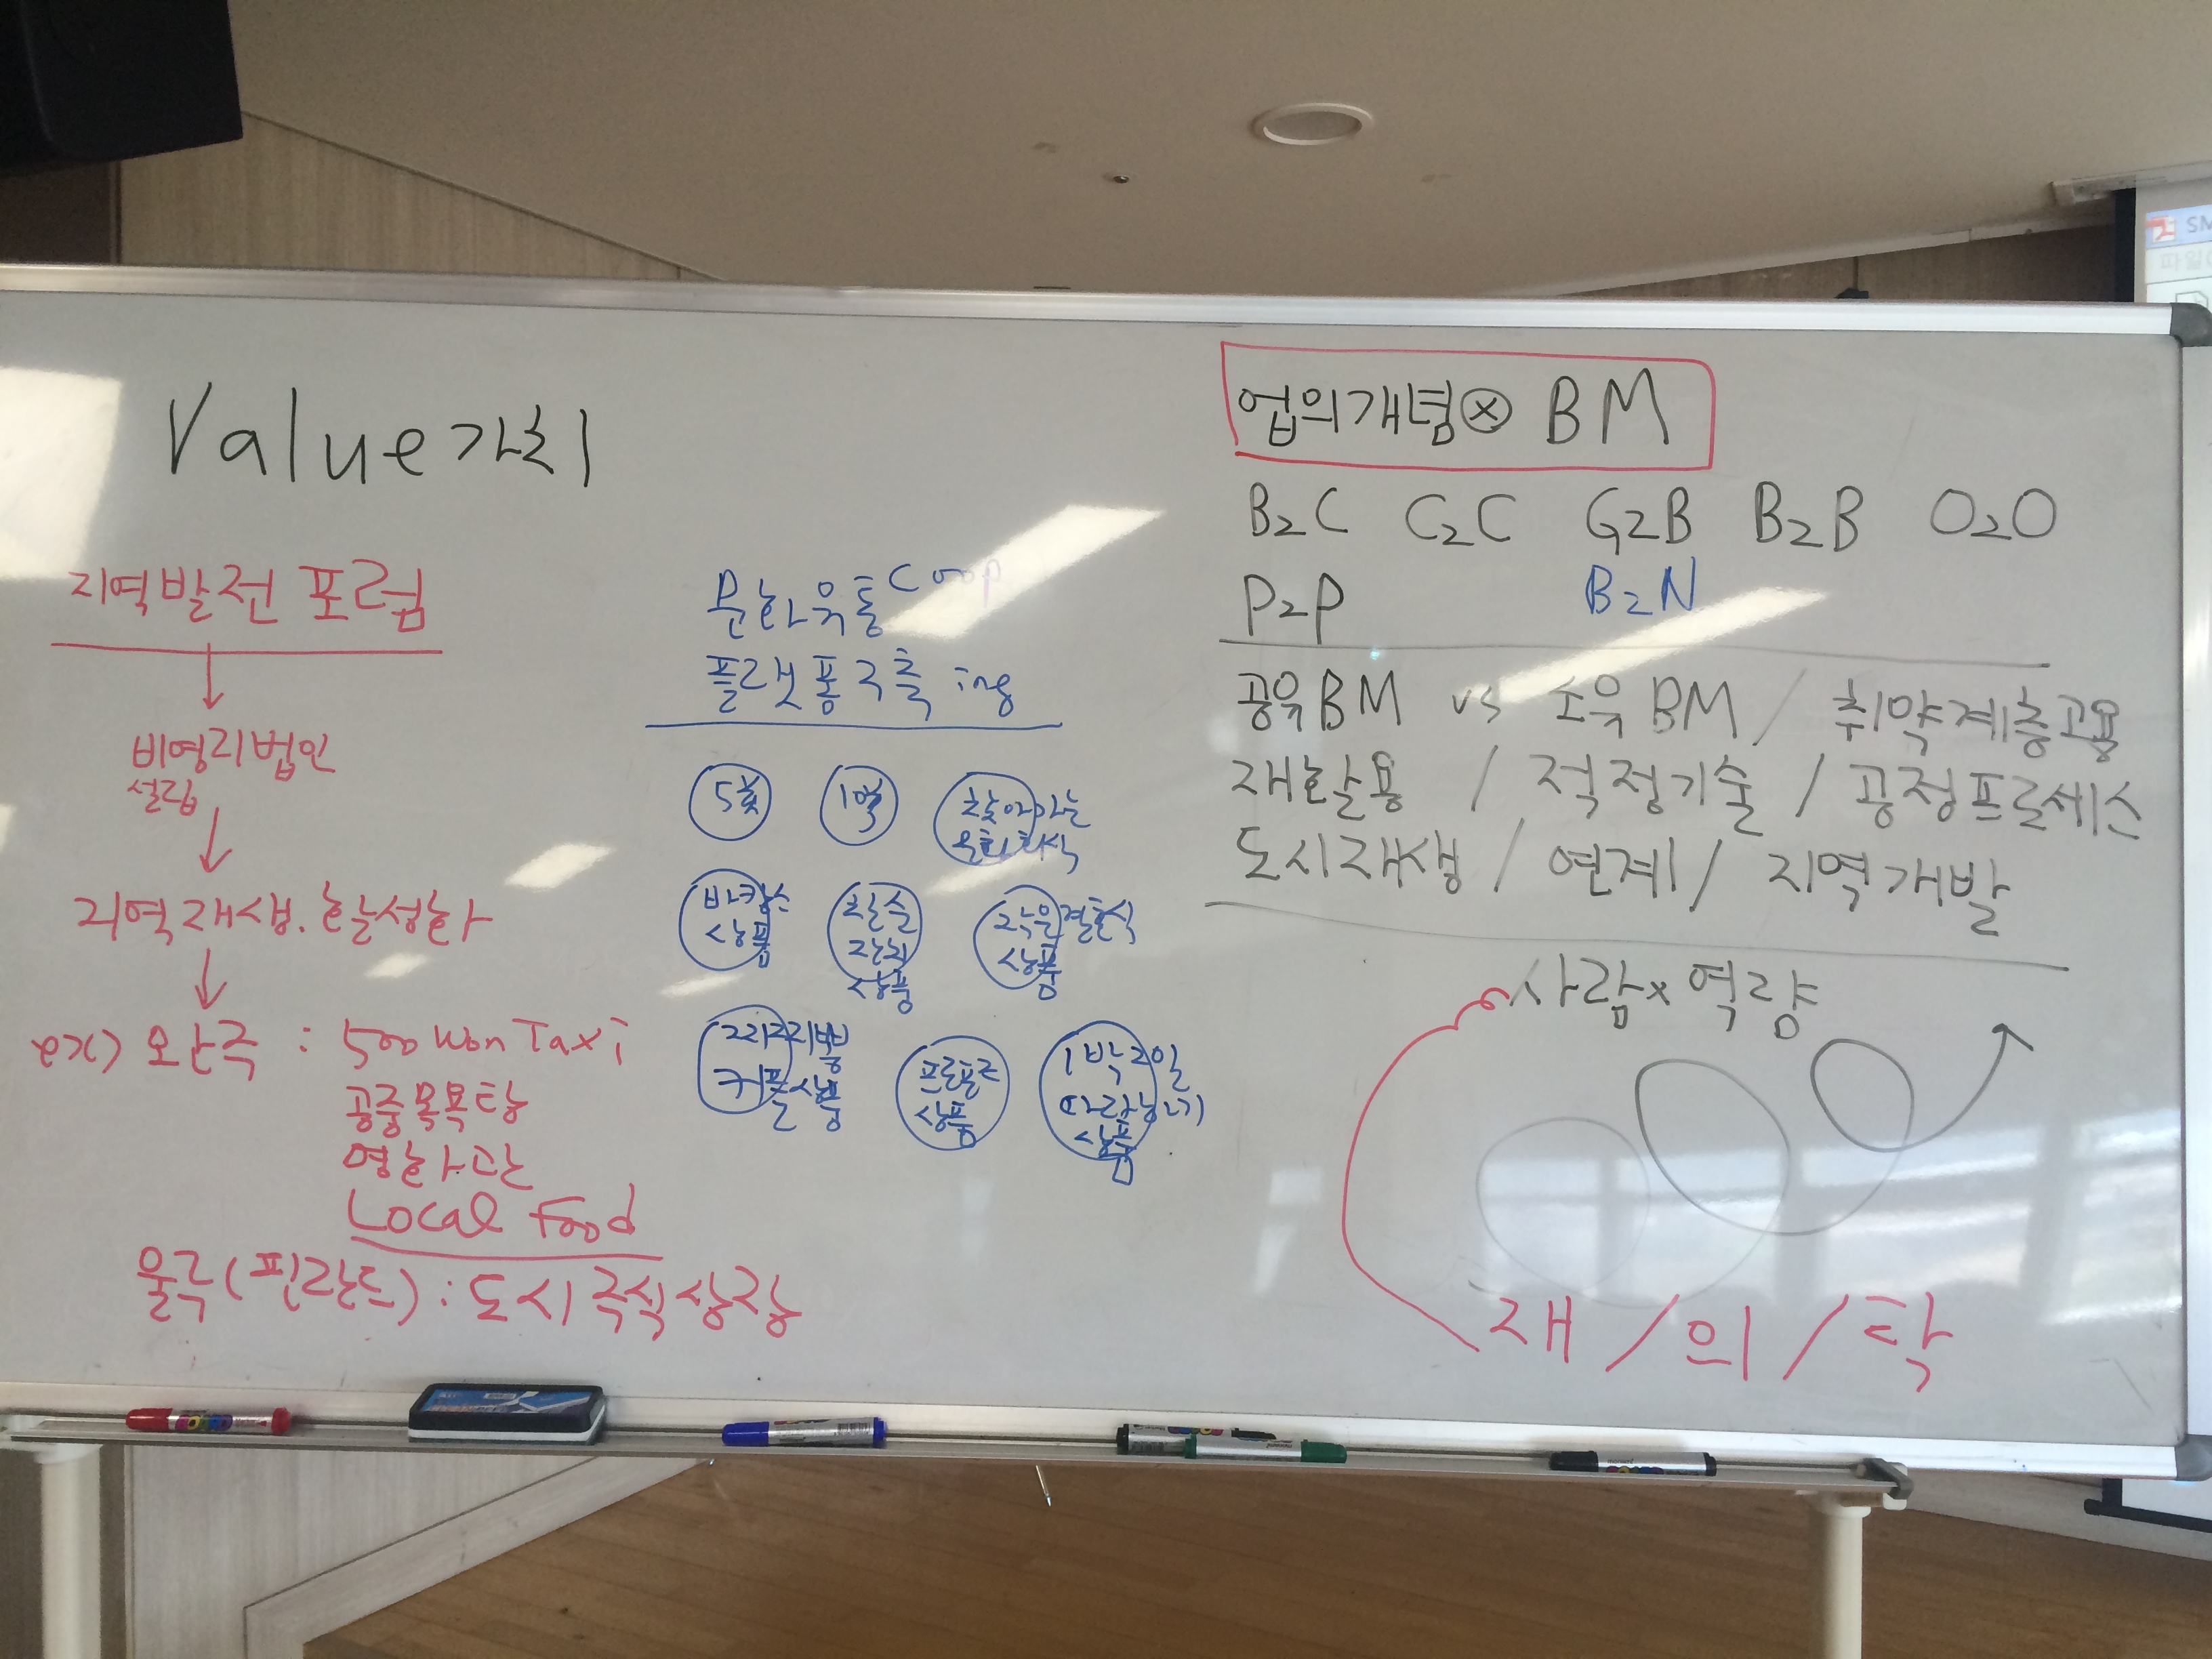 Value 가치
지역발전 포럼
비영리법인
설립
지역재생.활성화
ex) 완주 : 500 won Taxi
공중목욕탕
영화관
Local Food
울루(핀란드) : 도시 즉식 상장
문화유통 Coop
플랫폼구축 ing
5
찾아가는
바캉스
상품
환갑
잔치
상품
작은결혼식
상품
커플상품
프로포즈
상품
1박2일
상품
업의개념 ⊗ BM
B2C C2C G2B B2B O2O
P2P B2N
공유BM vs 소유BM / 취약계층고용
재활용 / 적정기술 / 공정프로세스
도시재생 / 연계 / 지역개발
사람 x 역량
재 / 의 / 탁
SM
파일(